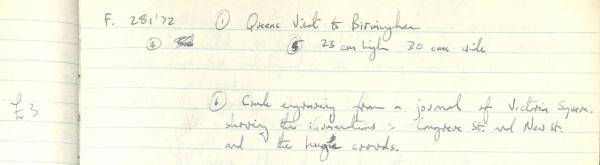 F. 281'72 ① Queens Visit to Birmingham
④ ⑤ 23 cms high 30 cms wide
⑥ Crude engraving from a journal of Victoria Square.
showing the illuminations :- Congreve St. and New St.
and the huge crowds.